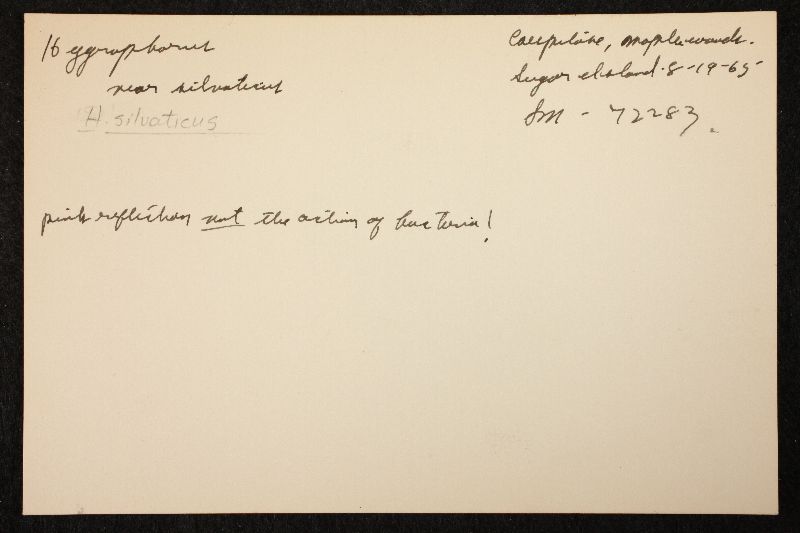 Hygrophorus
near silvaticus
H. silvaticus
Caespitose, maple woods.
Sugar Island 8-19-65
Sm - 72283.
pink reflection not the action of bacteria!